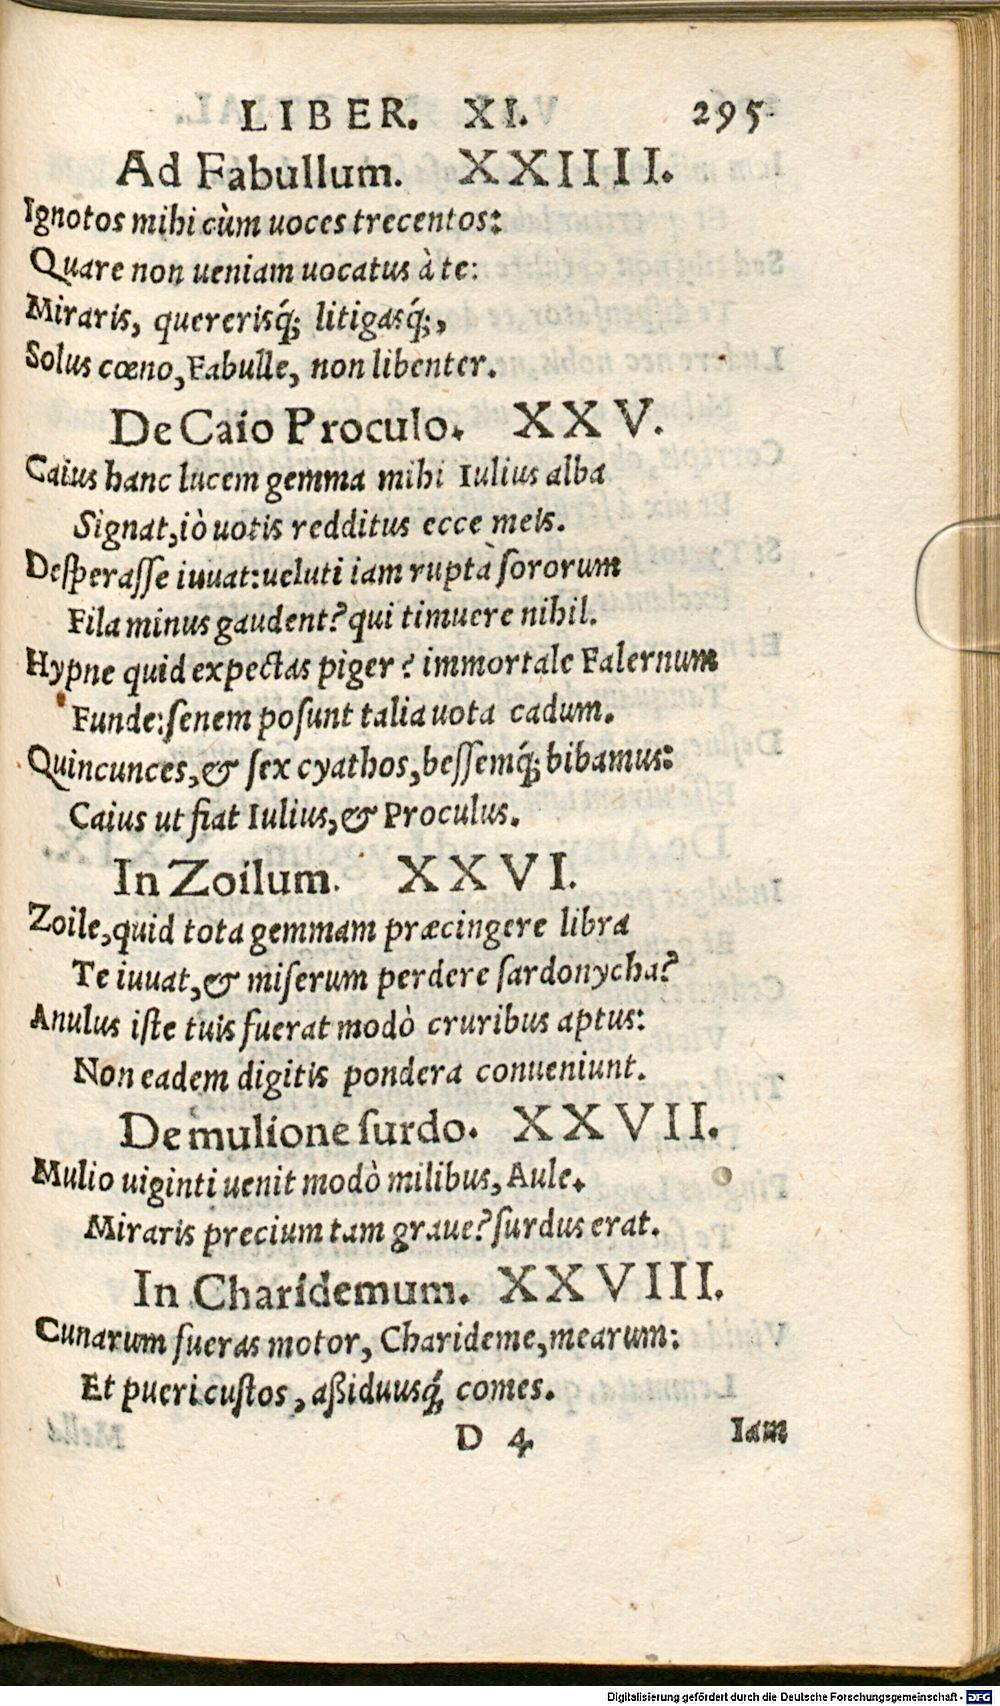 LIBER. XI. 295
Ad Fabullum. XXIIII.
Ignotos mihi cùm uoces trecentos:
Quare non ueniam uocatus à te:
Miraris, quererisq́; litigasq́;,
Solus cœno, Fabulle, non libenter.
De Caio Proculo. XXV.
Caius hanc lucem gemma mihi Iulius alba
Signat, iò uotis redditus ecce meis.
Desperasse iuuat: ueluti iam rupta sororum
Fila minus gaudent? qui timuere nihil.
Hypne quid expectas piger? immortale Falernum
Funde: senem posunt talia uota cadum.
Quincunces, & sex cyathos, bessemq́; bibamus:
Caius ut fiat Iulius, & Proculus.
In Zoilum. XXVI.
Zoile, quid tota gemmam præcingere libra
Te iuuat, & miserum perdere sardonycha?
Anulus iste tuis fuerat modò cruribus aptus:
Non eadem digitis pondera conueniunt.
De mulione surdo. XXVII.
Mulio uiginti uenit modò milibus, Aule.
Miraris precium tam graue? surdus erat.
In Charidemum. XXVIII.
Cunarum fueras motor, Charideme, mearum:
Et pueri custos, aßiduusq́; comes.
D 4 Iam
Digitalisierung gefördert durch die Deutsche Forschungsgemeinschaft - DFG